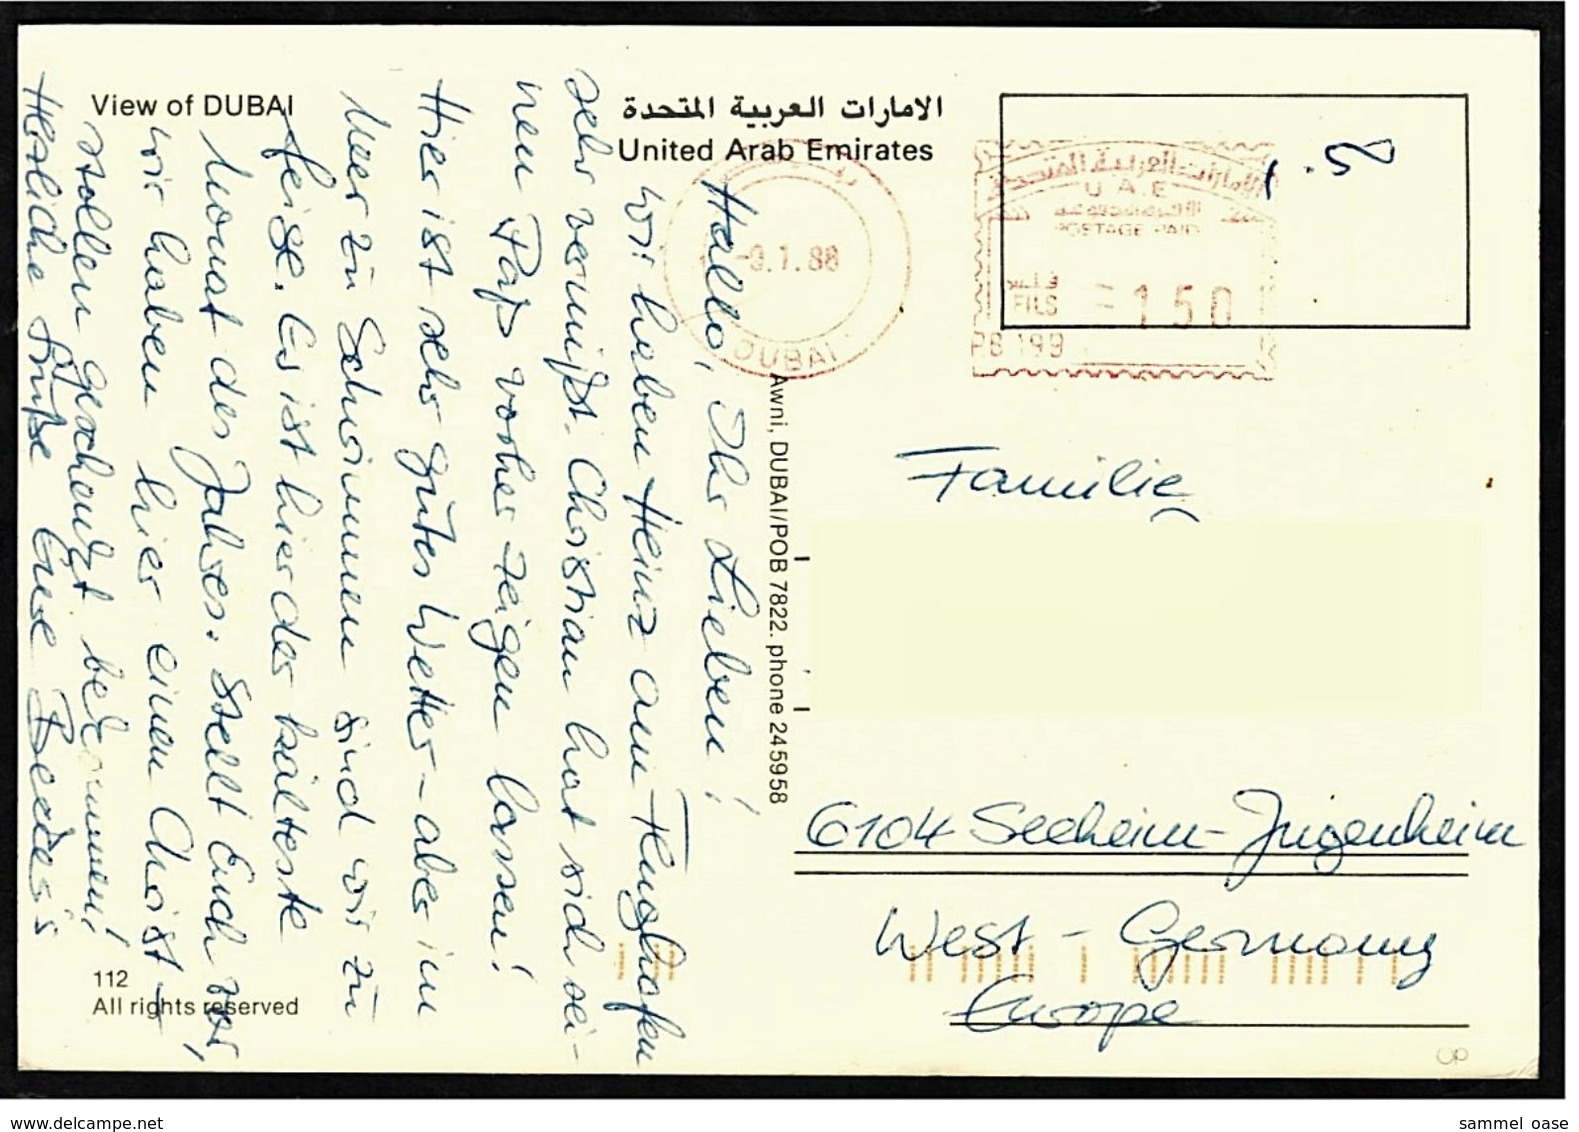 View of DUBAI
الامارات العربية المتحدة
United Arab Emirates
Hallo, Ihr Lieben!
wir haben Heinz am Flughafen
sehr vermißt. Christian hat sich sei-
nen Paß vorher zeigen lassen!
Hier ist sehr gutes Wetter - aber im
Meer zu Schwimmen sind wir zu
feige. Es ist hier der kälteste
Monat des Jahres. Stellt Euch vor,
wir haben hier einen Christ-
stollen geschenkt bekommen!
Herzliche Grüße Eure
DUBAI
-9.1.88
الامارات العربية المتحدة
U.A.E
POSTAGE PAID
فلس
FILS
=150
PB 199
Awni, DUBAI/POB 7822. phone 245958
Familie
6104 Seeheim-Jugenheim
West-Germany
Europe
112
All rights reserved
www.delcampe.net
sammel_oase